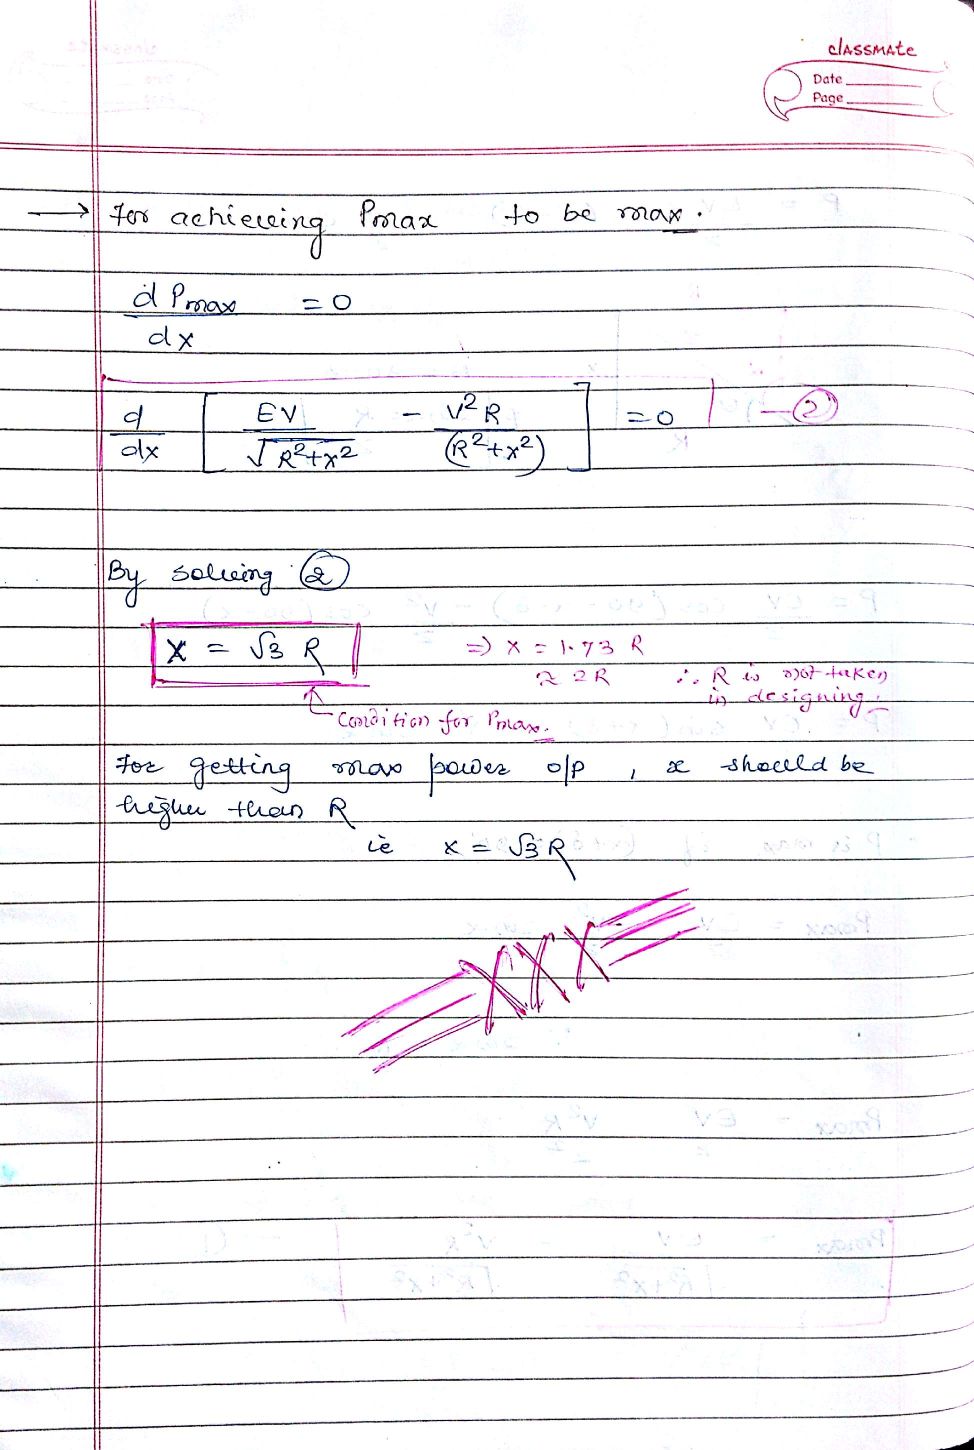 classmate
Date
Page
→ For achieving Pmax to be max.
d Pmax / dx = 0
d/dx [ EV / √R²+x² − V²R / (R²+x²) ] = 0 — ②
By solving ②
X = √3 R ⇒ x = 1.73 R
≈ 2R ∴ R is not taken in designing.
Condition for Pmax.
For getting max power o/p , x should be
higher than R
ie x = √3 R
XXX